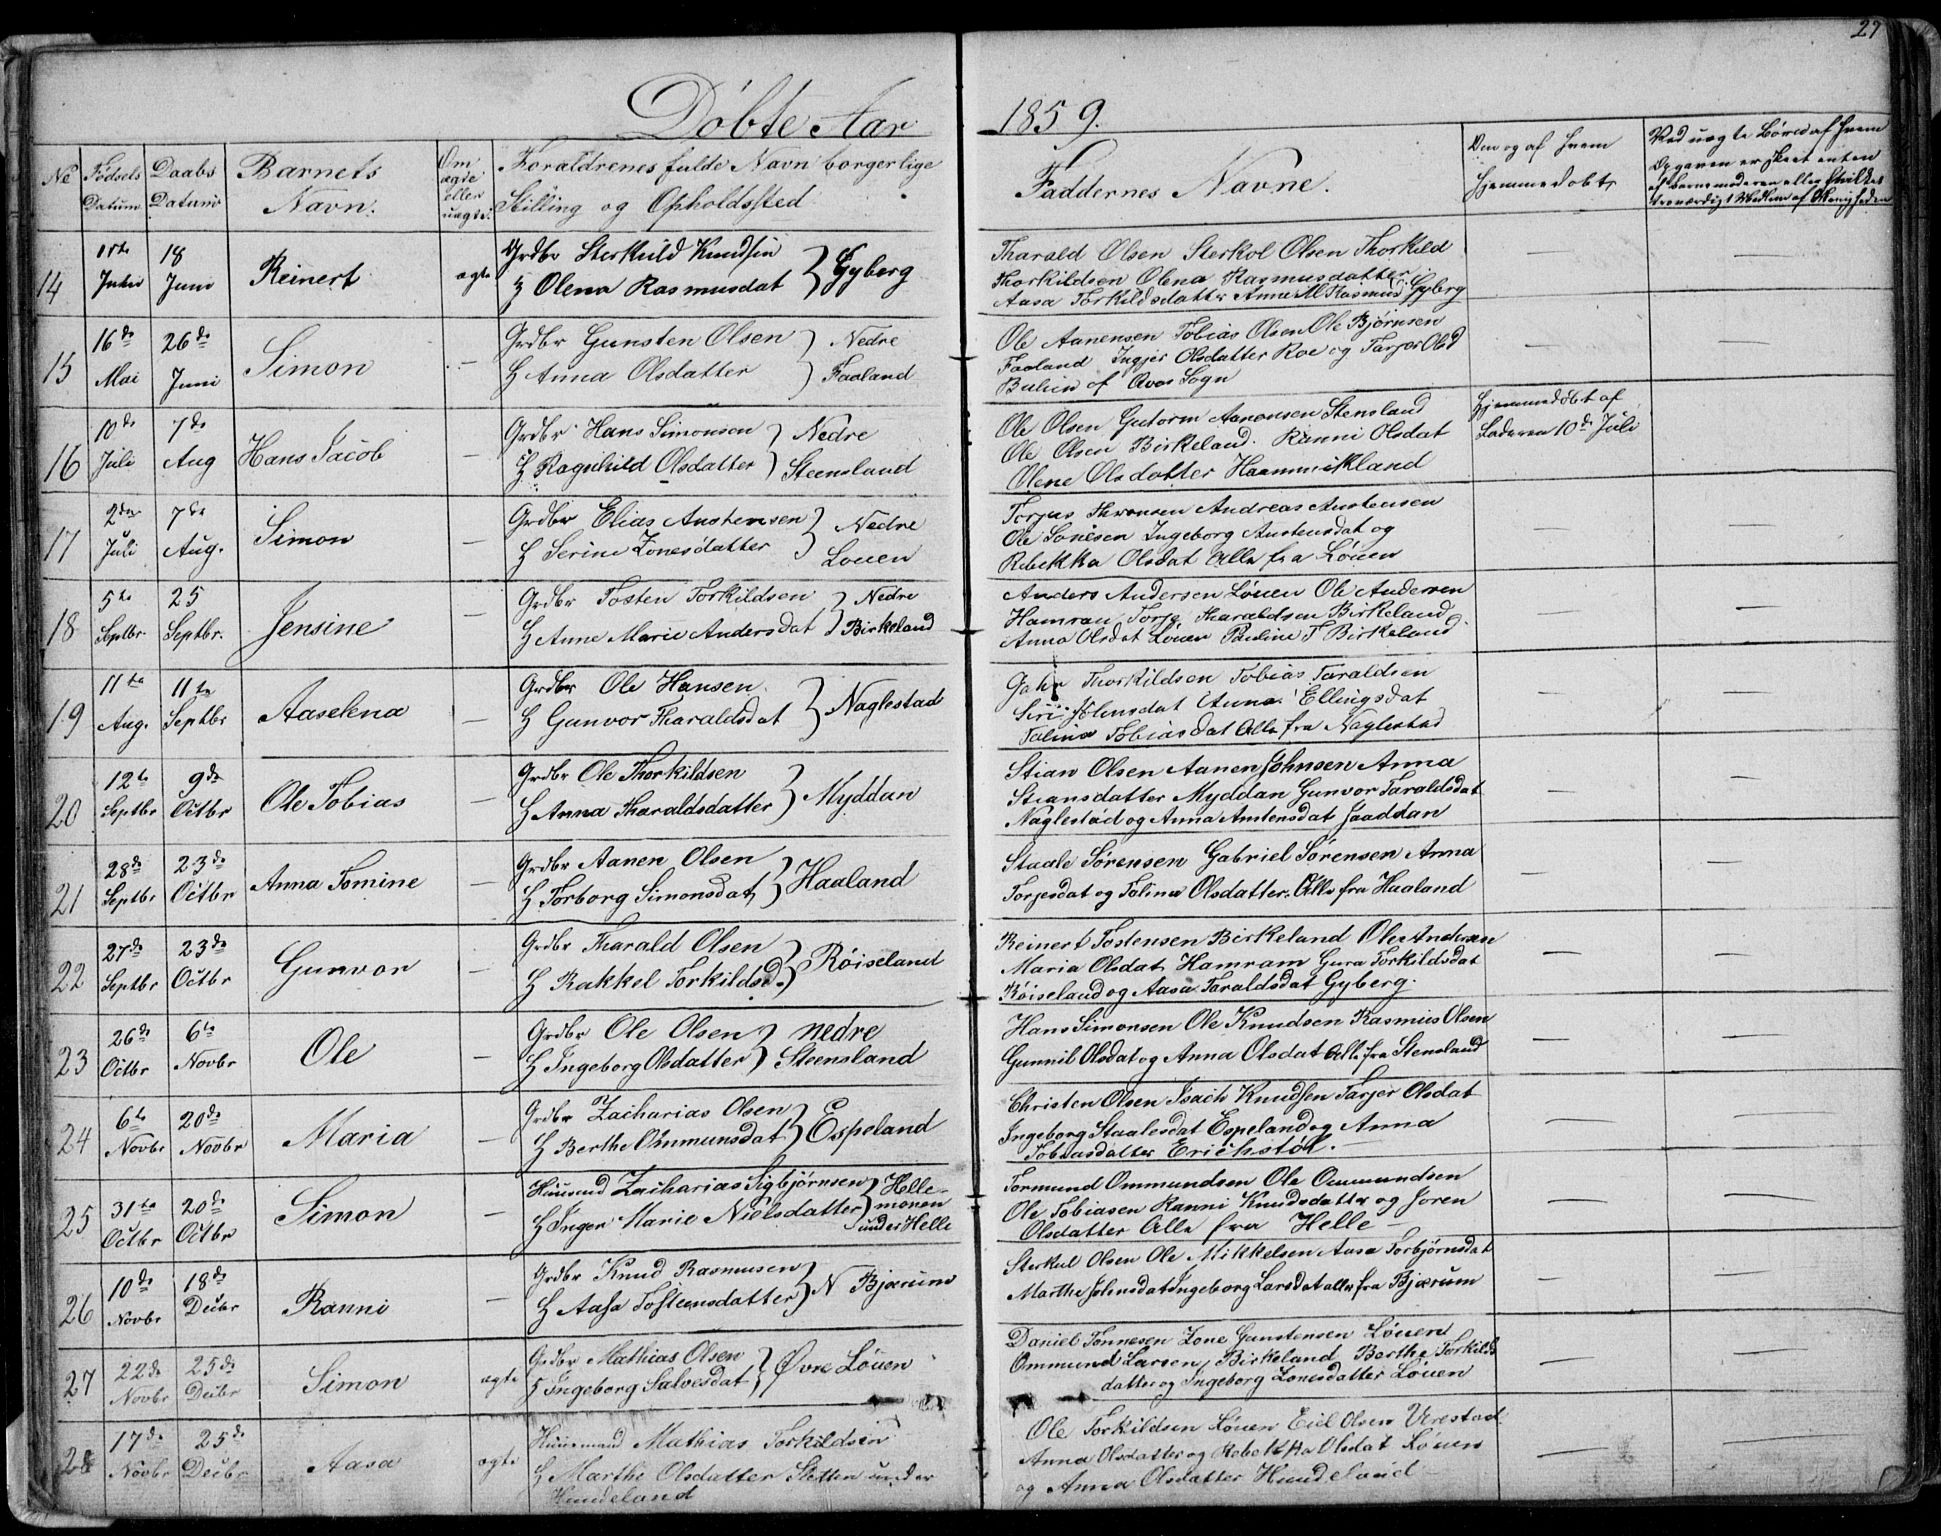 27
Döbte Aar 1859.
No Fødsels Datum Daabs Datum Barnets Navn. Om ægte eller uægte. Foraldrenes fulde Navn borgerlige Stilling og Opholdssted Faddernes Navne. Om og af hvem hjemmedøbt
Ved uægte Børn af hvem
Opgaven er skeet enten
af Barnemoderen eller hvilket
troværdigt Medlem af Menigheden
14 Juni 18 Juni Reinert ægte
Grdbr Sterkuld Knudsen
H Olena Rasmusdat } Gyberg
Tharald Olsen Sterkol Olsen Thorkild
Thorkildsen Olena Rasmusdatter
Aasa Torkildsdatter Anne M Rasmus Gyberg
— —
15 16de Mai 26de Juni Simon —
Grdbr Gunsten Olsen } Nedre
H Anna Olsdatter } Faaland
Ole Aanensen Tobias Olsen Ole Bjørnsen
Faaland Ingjer Olsdatter Roe og Tarjer Olsd
af Qvas Sogn
— —
16 10de Juli 7de Aug Hans Jacob —
Grdbr Hans Simonsen } Nedre
H Ragnhild Olsdatter } Steensland
Ole Olsen Gutorm Aanensen Stensland
Ole Olsen Birkeland. Ranni Olsdat
Olene Olsdatter Haammerkland
Hjemmedöbt af
Laderen 10de Juli
17 2den Juli 7de Aug. Simon —
Grdbr Elias Austensen } Nedre
H Serine Zonesdatter } Louen
Torjus Andreas Austensen
Ole Sonesen Ingeborg Austensdat og
Rebekka Olsdat Alle fra Löuen
— —
18 5te Septbr. 25 Septbr. Jensine —
Grdbr Tosten Torkildsen } Nedre
H Anne Marie Andersdat } Birkeland
Anders Andersen Löuen Ole Andersen
Hamran Torje Tharaldsen Birkeland
Anna Olsdat Löuen Pauline T Birkeland
— —
19 11te Aug. 11te Septbr Aaselena —
Grdbr Ole Hansen
H Gunvor Tharaldsdat } Naglestad
Thorkildsen Tobias Taraldsen
Siri Johnsdat Anna Ellingsdat
Talina Tobiasdat Alle fra Naglestad
— —
20 12te Septbr 9de Octbr Ole Tobias —
Grdbr Ole Thorkildsen
H Anna Tharaldsdatter } Myddan
Stian Olsen Aanen Johnsen Anna
Stiansdatter Myddan Gunvor Taraldsdat
Naglestad og Anna Austensdat Jaaddan
— —
21 28de Septbr 23de Octbr Anna Tomine —
Grdbr Aanen Olsen
H Torborg Simonsdat } Haaland
Staale Sörensen Gabriel Sörensen Anna
Torjesdat og Talina Olsdatter. Alle fra Haaland
— —
22 27de Septbr 23de Octbr Gunvor —
Grdbr Tharald Olsen
H Rakkel Torkildsd. } Röiseland
Reinert Tostensen Birkeland Ole Andersen
Maria Olsdat Hamram Gura Torkildsdat
Röiseland og Aasa Taraldsdat Gyberg.
— —
23 26de Octbr 6te Novbr Ole —
Grdbr Ole Olsen } nedre
H Ingeborg Olsdatter } Steensland
Hans Simonsen Ole Knudsen Rasmus Olsen
Gunnil Olsdat og Anna Olsdat Alle fra Stensland
— —
24 6te Novbr 20de Novbr Maria —
Grdbr Zacharias Olsen
H Berthe Ommunsdat } Espeland
Christen Olsen Isach Knudsen Tarjer Olsdat
Ingeborg Staalesdat Espeland og Anna
Tobiasdatter Erichstöl.
— —
25 31te Octbr 20de Octbr Simon —
Huusmd Zacharias Sigbjörnsen } Helle-
H Inger Marie Nielsdatter } monen
under Helle
Tormund Ommundsen Ole Ommundsen
Ole Tobiasen Ranni Knudsdatter og Joren
Olsdatter Alle fra Helle —
— —
26 10de Novbr 18de Decbr Ranni —
Grdbr Knud Rasmusen
H Aasa Tosteensdatter } N Bjærum
Sterkul Olsen Ole Mikkelsen Aasa Torbjørnsdat
Marthe Johnsdat Ingeborg Larsdat alle fra Bjærum
— —
27 22de Novbr 25de Decbr Simon ægte
Grdbr Mathias Olsen
H Ingeborg Salvesdat } Øvre Löuen
Daniel Tönnesen Zone Gunstensen Löuen
Ommund Larsen Birkeland Berthe Torkilds
datter og Ingeborg Zonesdatter Löuen
— —
28 17de Novbr 25de Decbr Aasa ægte
Huusmand Mathias Torkildsen
H Marthe Olsdatter Sletten under
Hundeland
Ole Torkildsen Löuen Eiel Olsen Verestad
Anna Olsdatter og Rebekka Olsdat Löuen
og Anna Olsdatter Hundeland
— —